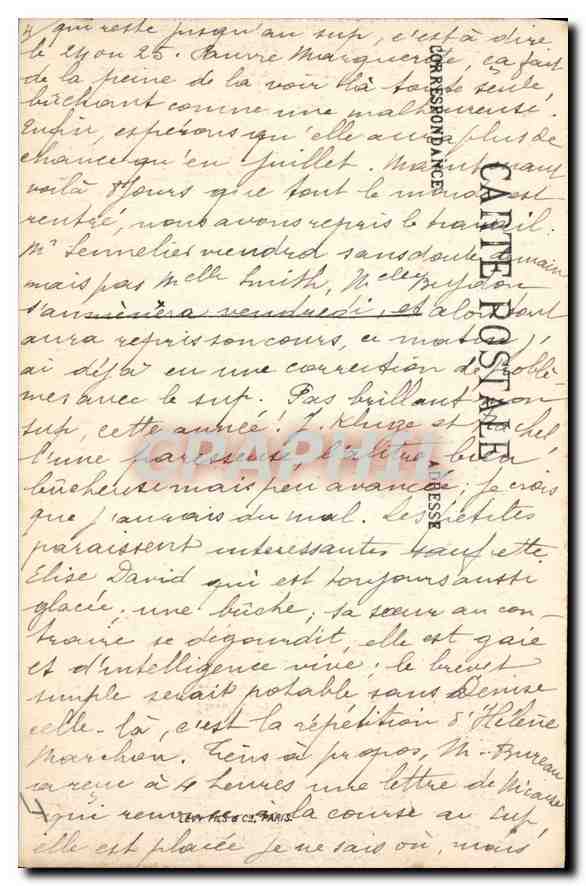 qui reste jusqu'au sup, c'est à dire
le Lyon 25. Pauvre Marguerite, ça fait
de la peine de la voir là toute seule,
bûchant comme une malheureuse.
Enfin, espérons qu'elle aura plus de
chance qu'en Juillet. Maintenant
voilà 8 jours que tout le monde est
rentré, nous avons repris le travail.
Mr Sennelier viendra sans doute demain
mais pas Melle Smith, Melle Buydon
s'amènera vendredi, et alors tout
aura repris son cours, ce matin j'
ai déjà eu une correction de problè-
mes avec le sup. Pas brillant mon
sup, cette année! J. Kluze et
l'une paresseuse, l'autre bien
bûcheuse mais peu avancée; je crois
que j'aurais du mal. Les petites
paraissent intéressantes sauf cette
Elise David qui est toujours aussi
glacée, une bûche; sa sœur au con-
traire se dégourdit, elle est gaie
et d'intelligence vive; le brevet
simple serait potable sans Denise
celle-là, c'est la répétition d'Hélène
Marchon. Tiens à propos, M. Bureau
a reçu à 4 heures une lettre de
qui renonce à la course au sup,
elle est placée je ne sais où, mais
4
CORRESPONDANCE
CARTE POSTALE
ADRESSE
LEVY FILS & Cie, PARIS.
CPAPHIL